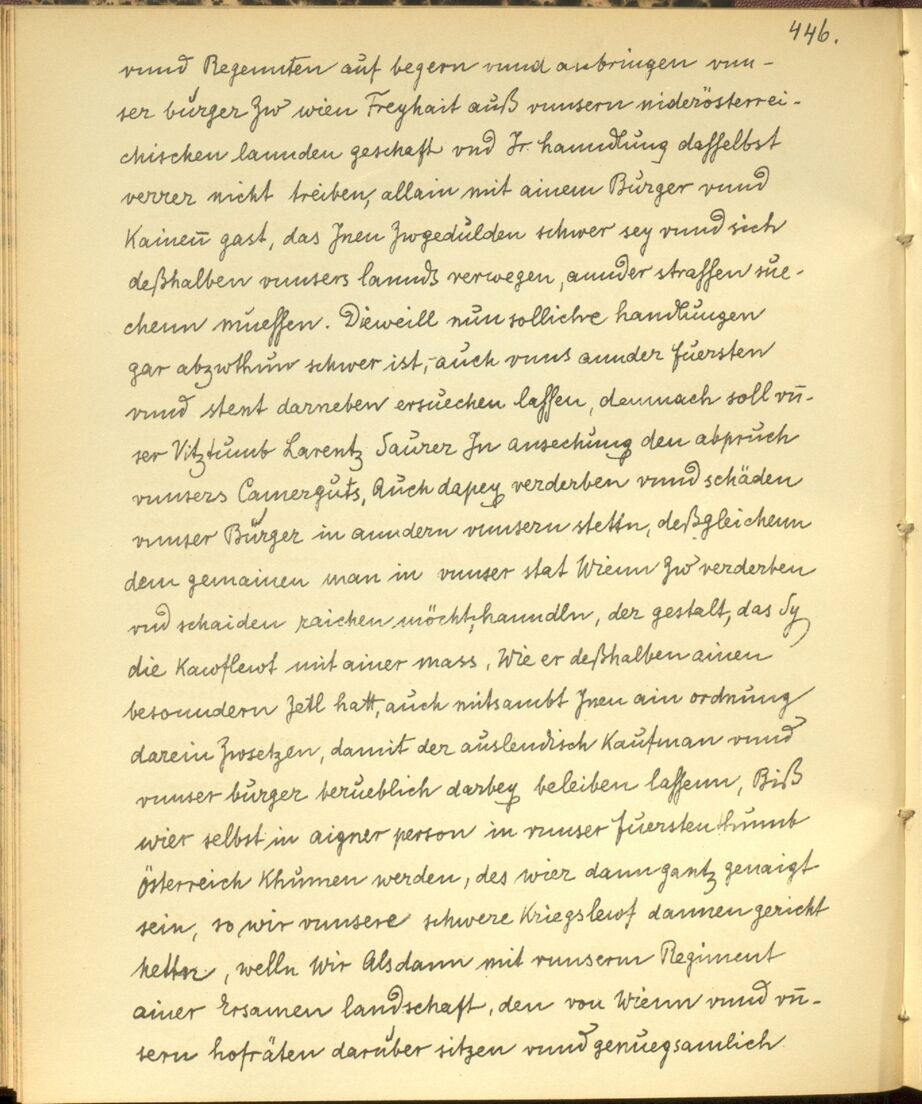 446.
vnnd Regennten auf begern vnnd anbringen vnn-
ser burger Zw wien Freyhait auß vnnsern niderösterrei-
chischen lannden geschaft vnd Jr hanndlung dasselbst
verrer nicht treiben, allain mit ainem Burger vnnd
Kainen gast, das Jnen Zwgedulden schwer sey vnnd sich
deßhalben vnnsers lannds verwegen, annder strassen sue-
chenn muessen. Dieweill nun solliche handlungen
gar abzwthun schwer ist, auch vnns annder fuersten
vnnd stent darneben ersuechen lassen, demnach soll vn̄-
ser Vitztumb Larentz Saurer Jn ansechung den abpruch
vnnsers Camerguts, Auch dapey verderben vnnd schäden
vnnser Burger in anndern vnnsern stettn, deßgleichenn
dem gemainen man in vnnser stat Wienn Zw verderben
vnd schaiden raichen möcht, hanndln, der gestalt, das Sy
die Kawflewt mit ainer mass, Wie er deßhalben ainen
besonndern Zetl hatt, auch mitsambt Jnen ain ordnung
darein Zwsetzen, damit der auslendisch Kaufman vnnd
vnnser burger berueblich darbey beleiben lassenn, Biß
wier selbst in aigner person in vnnser fuerstenthumb
Österreich Khumen werden, des wier dann gantz genaigt
sein, so wir vnnsere schwere Kriegslewf dannen gericht
hettn, welln Wir Alsdann mit vnnserm Regiment
ainer Ersamen landschaft, den von Wienn vnnd vn̄-
sern hofräten daruber sitzen vnnd genuegsamlich